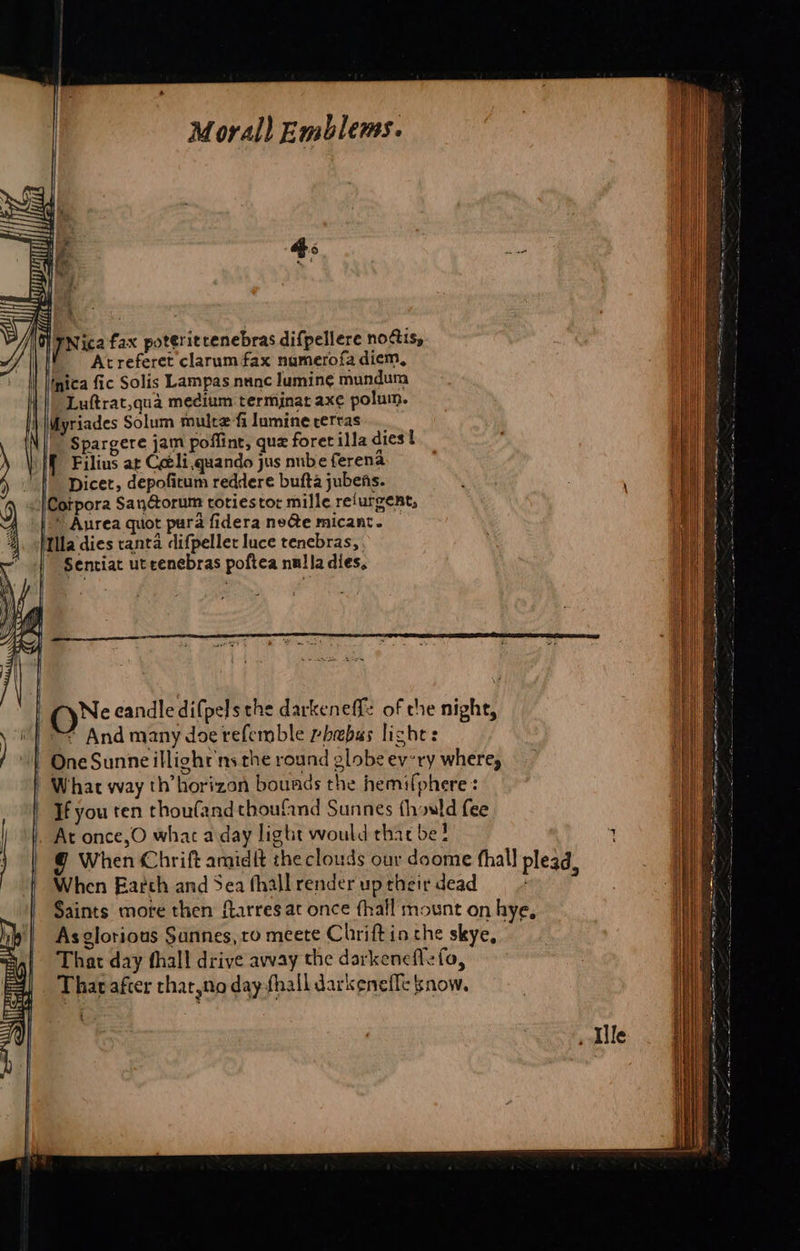 Morall Emblems.
4.
VNica fax poterit tenebras diſpellere noctis,
At referet clarum fax numeroſa diem,
Unica ſic Solis Lampas nunc lumine mundum
Luſtrat, quà medium terminat axe polum.
Myriades Solum multæ ſi lumine terras
Spargere jam poſſint, quæ foret illa dies!
¶ Filius at Cœli, quando jus nube ſerenâ
Dicet, depoſitum reddere buſta jubens.
Corpora Sanctorum toties tot mille reſurgent,
Aurea quot purâ ſidera nocte micant.
Illa dies tantâ diſpellet luce tenebras,
Sentiat ut tenebras poſtea nulla dies.
ONe candle diſpels the darkeneſſe of the night,
And many doe reſemble phœbus light:
One Sunne illight'ns the round globe ev'ry where,
What way th'horizon bounds the hemiſphere:
If you ten thouſand thouſand Sunnes ſhould ſee
At once, O what a day light would that be!
¶ When Chriſt amidſt the clouds our doome ſhall plead,
When Earth and Sea ſhall render up their dead
Saints more then ſtarres at once ſhall mount on hye,
As glorious Sunnes, to meete Chriſt in the skye,
That day ſhall drive away the darkeneſſe ſo,
That after that, no day ſhall darkeneſſe know.
Ille